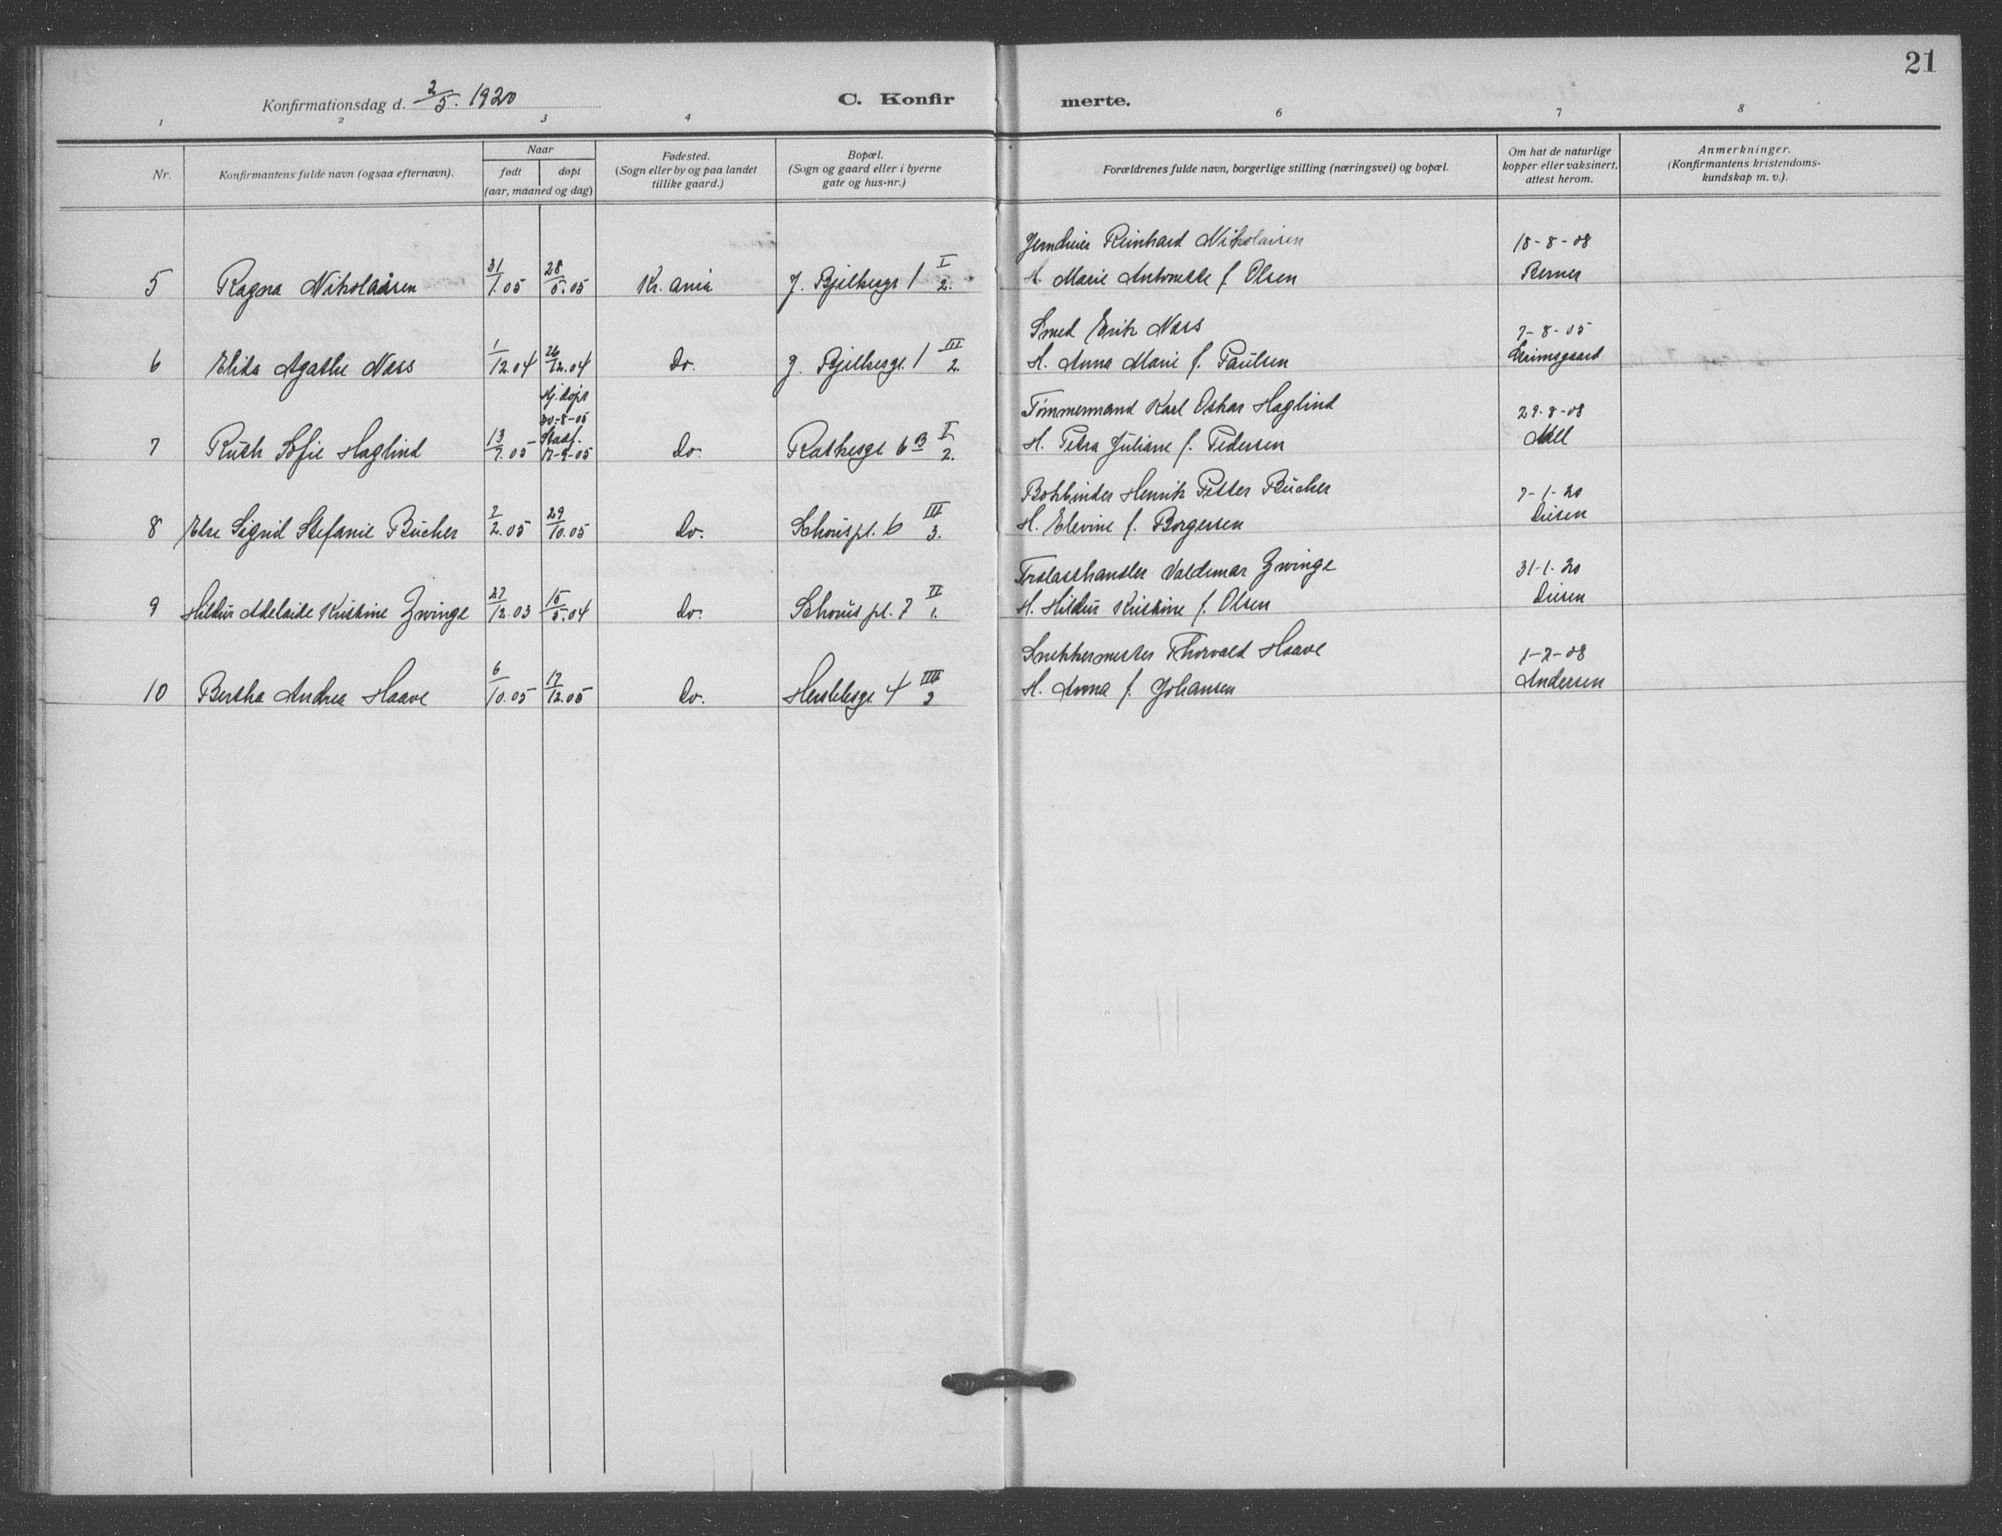 21
Konfirmationsdag d. 2/5. 1920
C. Konfirmerte.
1 2 3 4 6 7 8
Nr.
Konfirmantens fulde navn (ogsaa efternavn).
Naar
født døpt
(aar, maaned og dag)
Fødested.
(Sogn eller by og paa landet
tillike gaard.)
Bopæl.
(Sogn og gaard eller i byerne
gate og hus-nr.)
Forældrenes fulde navn, borgerlige stilling (næringsvei) og bopæl.
Om hat de naturlige
kopper eller vaksinert,
attest herom.
Anmerkninger.
(Konfirmantens kristendoms-
kundskap m. v.).
Reinhard Nikolaisen 18-8-08
5 Ragna Nikolaisen 31/1.05 28/5.05 Kr.ania J. Bjelkesgt 1 I/2. H. Marie Antonette f. Olsen Berner
Smed Erik Næss 7-8-05
6 Elida Agathe Næss 1/12.04 26/12.04 Do. J. Bjelkesgt. 1 III/2. H. Anna Marie f. Paulsen
Hj. døpt
30-8-05
Tømmermand Karl Oskar Haglind 29-8-08
7 Ruth Sofie Haglind 13/7.05 Stadf. 17-9-05 Do. Rathkesgt 6 B I/2. H. Petra Juliane f. Pedersen
Bokbinder Henrik Petter Bücher 7-1-20
8 Else Sigrid Stefanie Bücher 7/2.05 29/10.05 Do. Schouspl. 6 III/3. H. Elevine f. Borgersen Diesen
Trælasthandler Valdemar Zwinge 31-1-20
9 Hildur Adelaide Kristine Zwinge 27/12.03 15/5.04 Do. Schous pl. 7 II/1. H. Hildur Kristine f. Olsen Diesen
Snekkermester Thorvald Haave 1-7-08
10 Bertha Andrea Haave 6/10.05 17/12.05 Do. Herslebsgt. 4 III/3 H. Anna f. Johansen Andersen